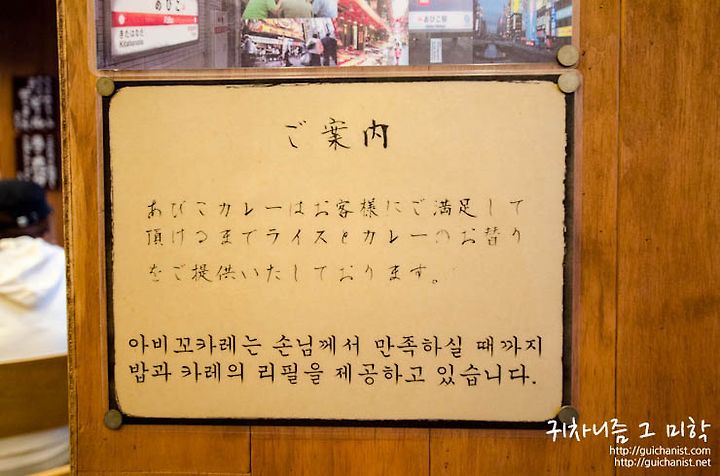 あびこ
きたはなだ
Kitahanada
あびこ
ご案内
あびこカレーはお客様にご満足して
頂けるまでライスとカレーのお替り
をご提供いたしております。
아비꼬카레는 손님께서 만족하실 때까지
밥과 카레의 리필을 제공하고 있습니다.
귀차니즘 그 미학
http://guichanist.com
http://guichanist.net